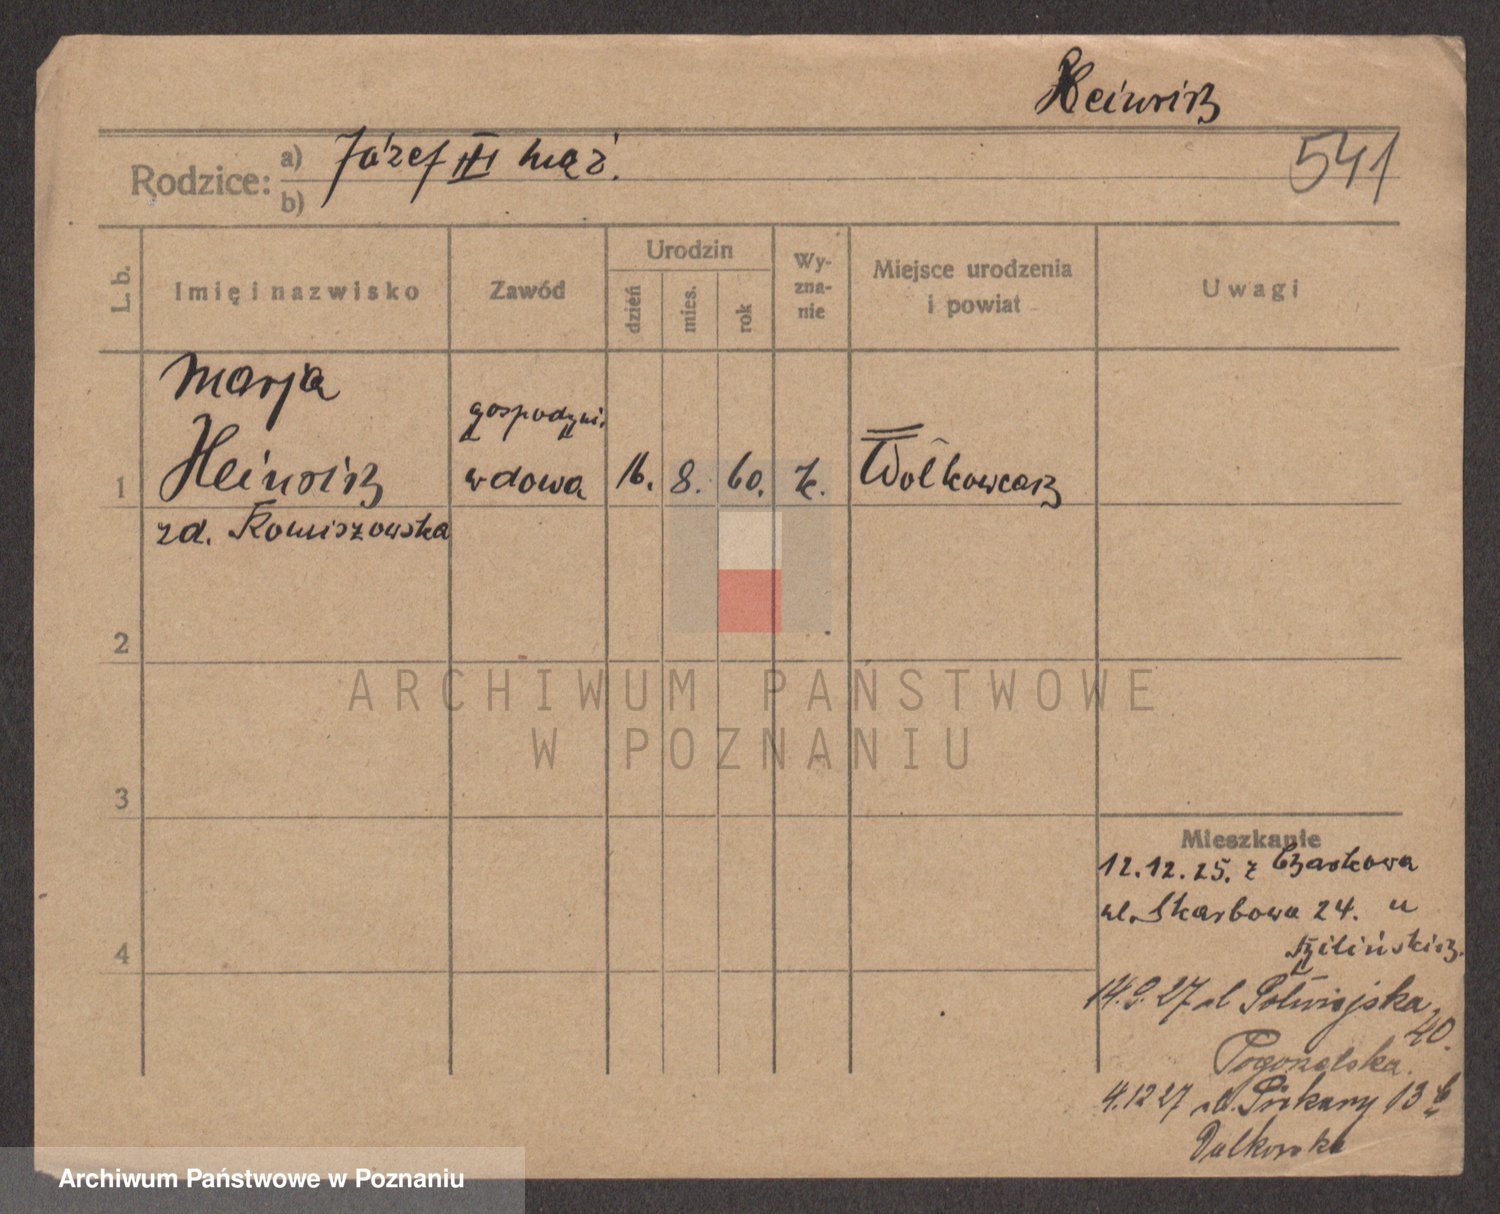 Heinrich
Rodzice: a) Józef III mąż.
b)
541
L. b.
Imię i nazwisko
Zawód
Urodzin
dzień
mies.
rok
Wy-
zna-
nie
Miejsce urodzenia
i powiat
Uwagi
Marja
gospodyni.
1 Heinrich wdowa 16. 8. 60. k.
zd. Komiszowska
2
ARCHIWUM PAŃSTWOWE
W POZNANIU
3
Mieszkanie
12.12.25. z Czarkowa
ul. Skarbowa 24. u
4
14.9.27 ul Półwiejska
20.
4.12 27 ul. Piekary 13
Archiwum Państwowe w Poznaniu